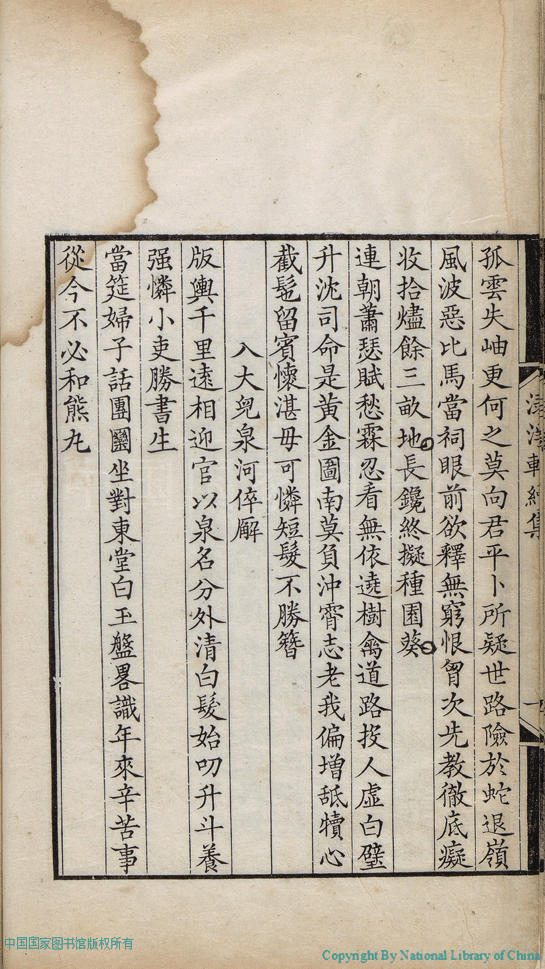 孤雲失岫更何之莫向君平卜所疑世路險於蛇退嶺
風波惡比馬當祠眼前欲釋無窮恨胷次先教徹底癡
收拾燼餘三畝地長鑱終擬種園葵
連朝蕭瑟賦愁霖忍看無依遶樹禽道路投人虛白璧
升沈司命是黃金圖南莫負沖霄志老我偏增舐犢心
截髢留賓懷湛母可憐短髮不勝簪
入大兒泉河倅廨
版輿千里遠相迎官以泉名分外清白髮始叨升斗養
强憐小吏勝書生
當筵婦子話團圞坐對東堂白玉盤畧識年來辛苦事
從今不必和熊丸
中国国家图书馆版权所有
Copyright By National Library of China